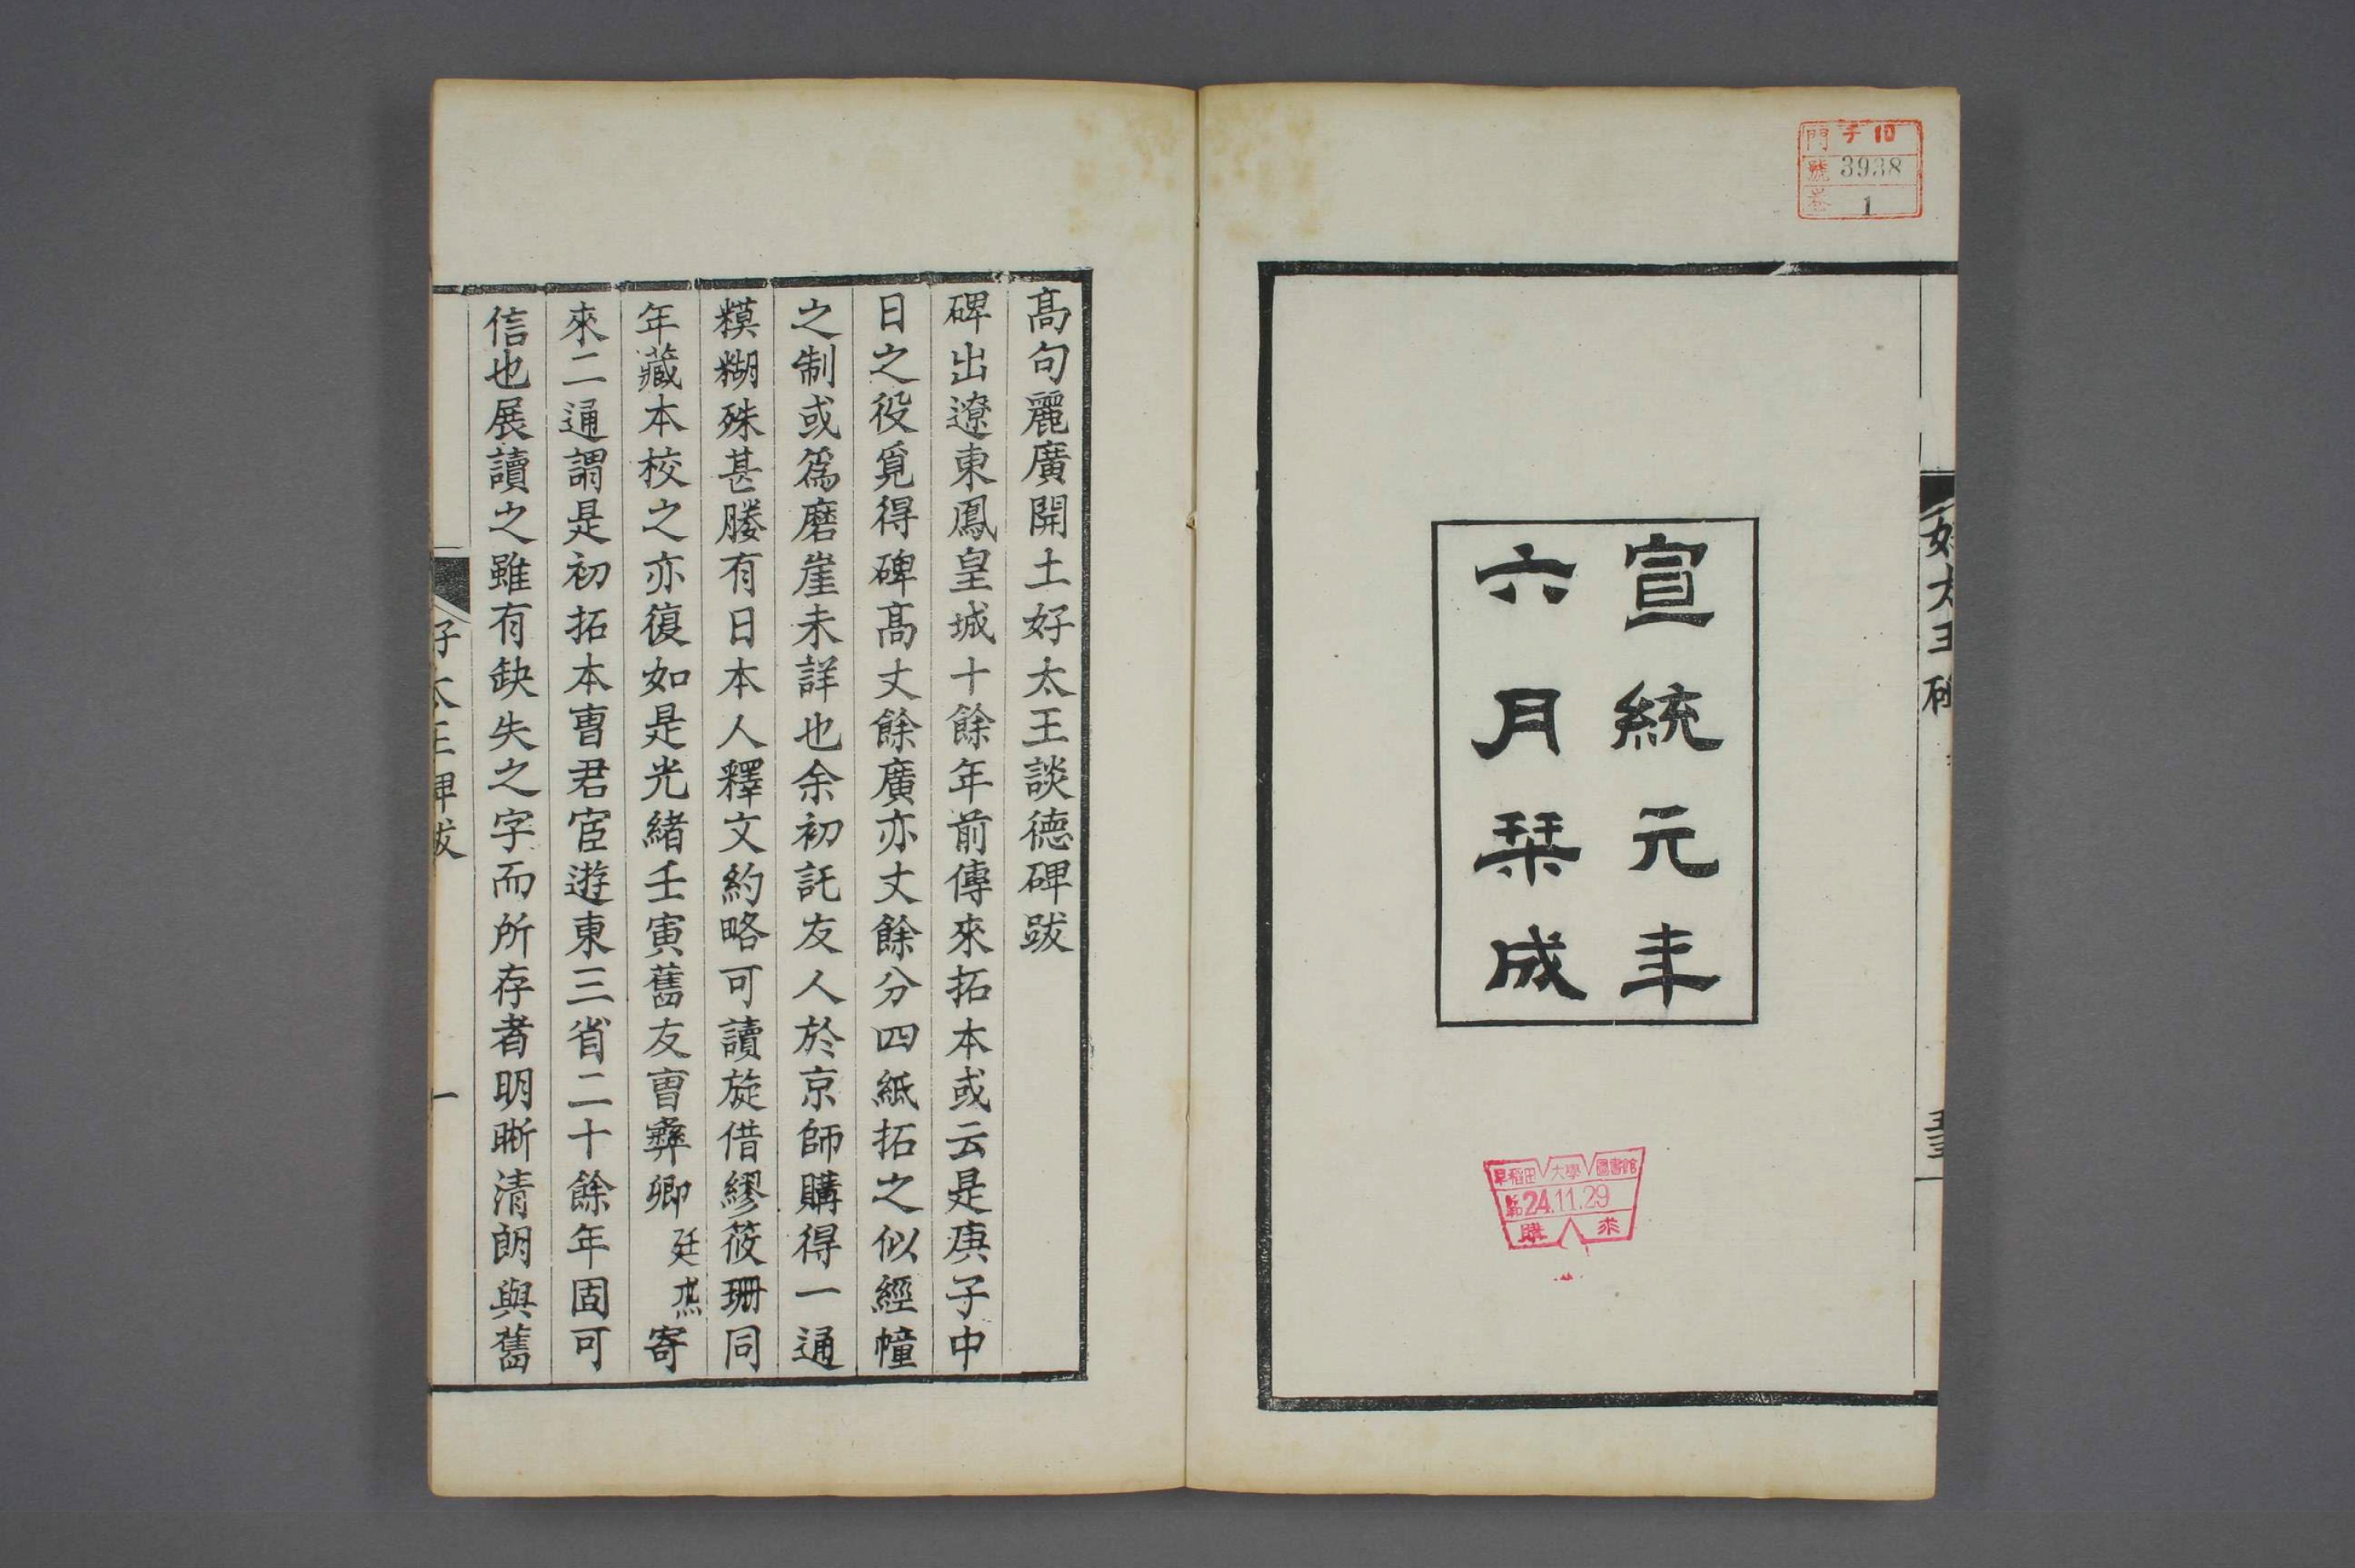 門 チ10
號 3938
卷 1
宣統元年
六月栞成
早稻田大學圖書館
昭和24.11.29
購求
好太王碑
高句麗廣開土好太王談德碑跋
碑出遼東鳳皇城十餘年前傳來拓本或云是庚子中
日之役覓得碑高丈餘廣亦丈餘分四紙拓之似經幢
之制或為磨崖未詳也余初託友人於京師購得一通
糢糊殊甚賸有日本人釋文約略可讀旋借繆筱珊同
年藏本校之亦復如是光緒壬寅舊友曹彝卿廷杰寄
來二通謂是初拓本曹君宦遊東三省二十餘年固可
信也展讀之雖有缺失之字而所存者明晰清朗與舊
好太王碑跋
一